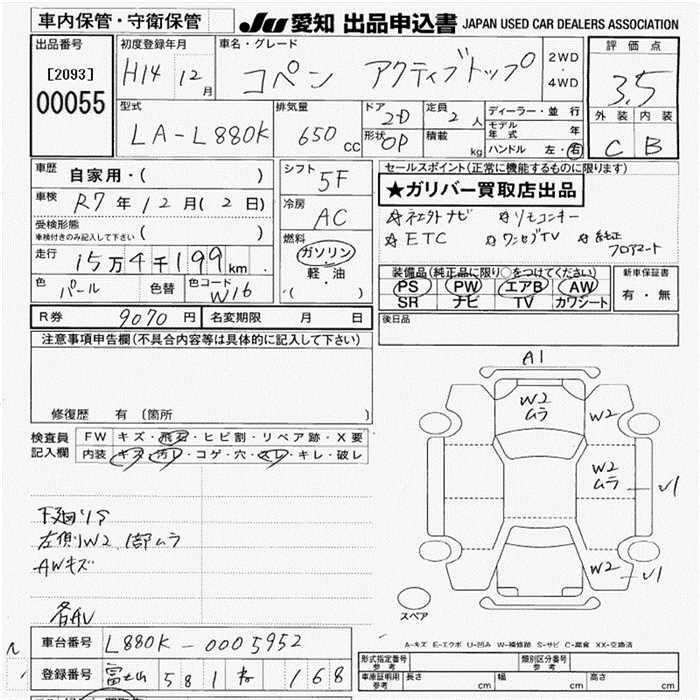 車内保管・守衛保管
JU 愛知 出品申込書 JAPAN USED CAR DEALERS ASSOCIATION
出品番号
[2093]
00055
初度登録年月
H14 12月
車名・グレード
コペン アクティブトップ
2WD
・
4WD
評価点
3.5
外装 内装
C B
型式
LA-L880K
排気量
650 cc
ドア
2D
形状
OP
定員
2人
積載
kg
ディーラー・並行
モデル年式 年
ハンドル 左・右
車歴
自家用・( )
車検
R7年12月(2日)
受検形態
車検付きのみ記入して下さい ( )
走行
15万4千199km
色
パール
色替
色コード
W16
シフト
5F
冷房
AC
燃料
ガソリン
・
軽・油
・( )
セールスポイント(正常に機能するものに限ります)
★ガリバー買取店出品
☆ リモコンキー
☆ETC ☆ワンセグTV ☆純正フロアマート
装備品(純正品に限り○をつけてください)
PS PW エアB AW
SR ナビ TV カワシート
新車保証書
有・無
R券 9070円
名変期限 月 日
後日品
注意事項申告欄(不具合内容等は具体的に記入して下さい)
修復歴 有 〔箇所 〕
検査員記入欄
FW キズ・飛石・ヒビ割・リペア跡・X要
内装 キズ・汚レ・コゲ・穴・スレ・キレ・破レ
下廻りS
左側W2 1部ムラ
AWキズ
各AU
A1
W2
ムラ
W2
W2
ムラ
U1
W2
U1
スペア
A-キズ E-エクボ U-凹み W-補修跡 S-サビ C-腐食 XX-交換済
車台番号 L880K-0005952
登録番号 富士山 581 168
形式指定番号
参考
類別区分番号
参考
車庫証明用
参考
長さ cm 幅 cm 高さ cm